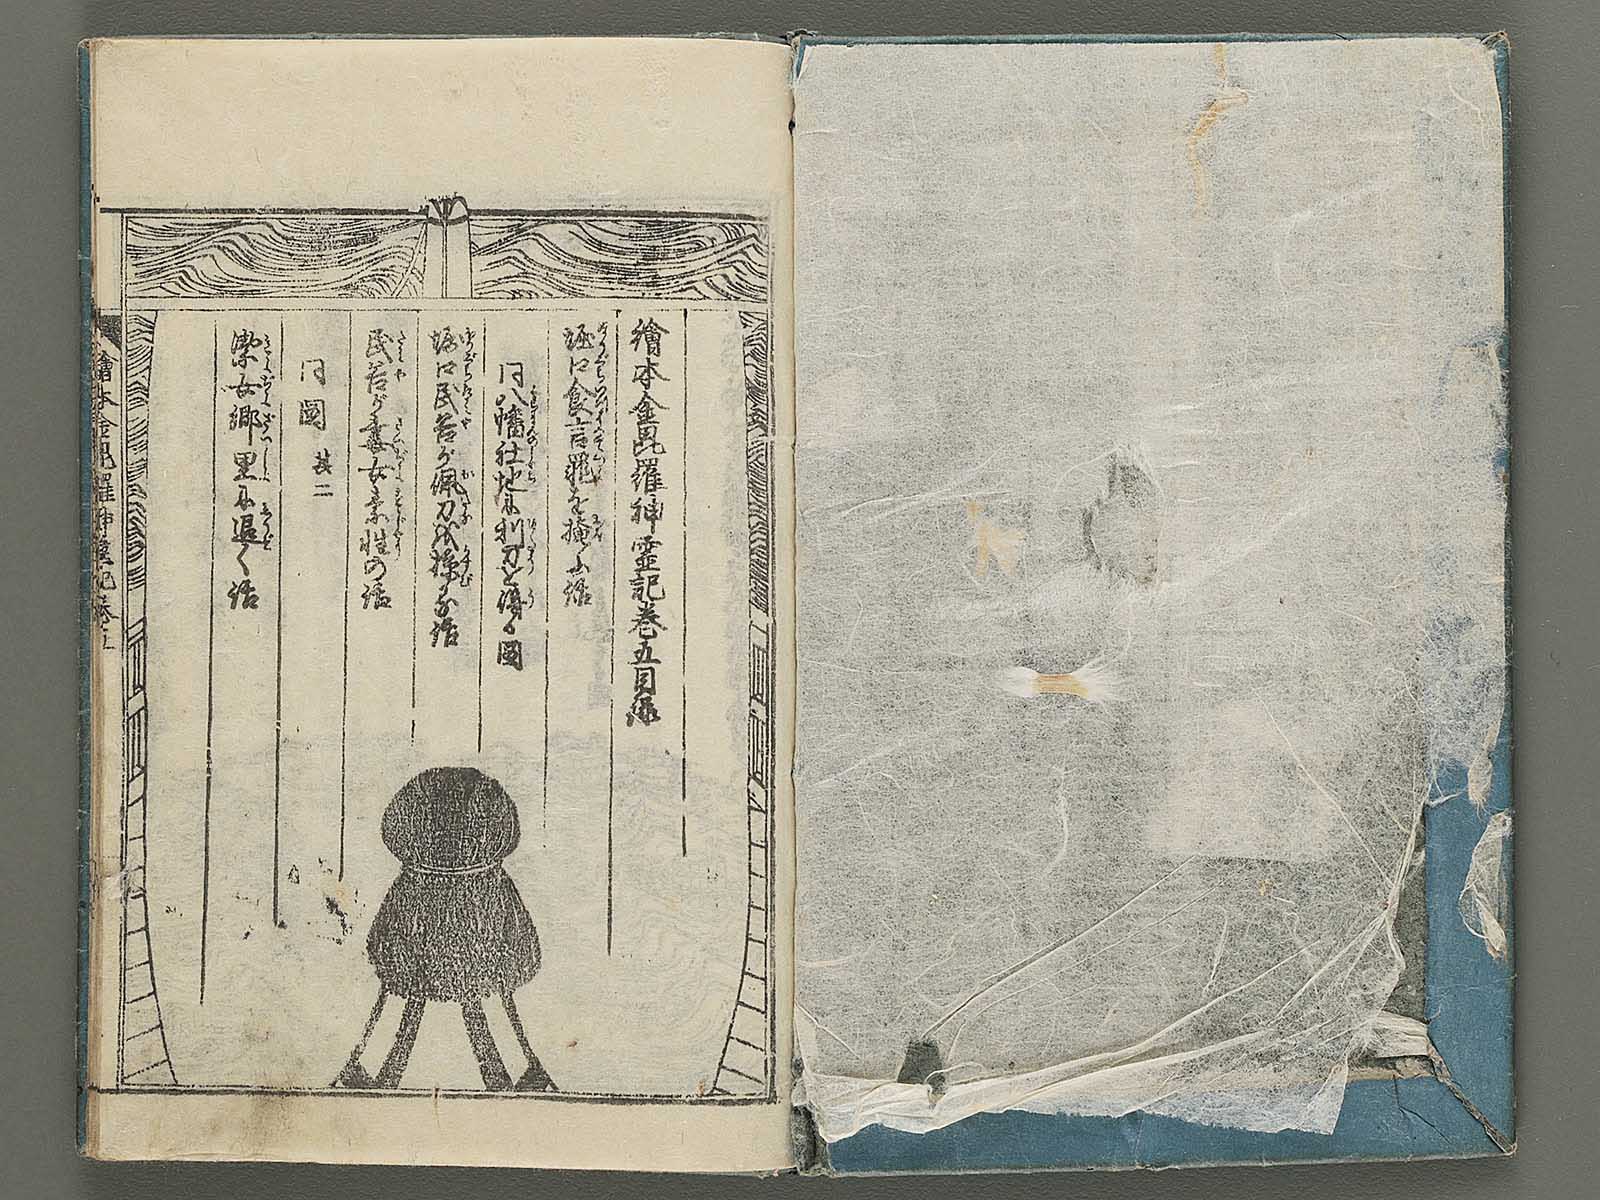 繪本金毘羅神霊記巻五目録
堀口食言罪を掩ふ話
同八幡社地に利刀を得る図
堀口民谷が佩刀
民谷が妻女素性の話
同図 其二
潔女郷里に退く話
繪本金毘羅神霊記巻之五